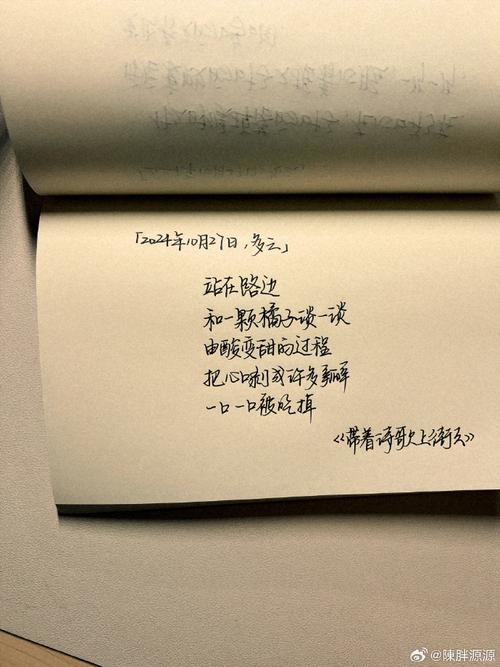 「2024年10月27日，多云」
站在路边
和一颗橘子谈一谈
由酸变甜的过程
把心口剥成许多新鲜
一口一口被吃掉
《带着诗歌上街去》
@陳胖源源